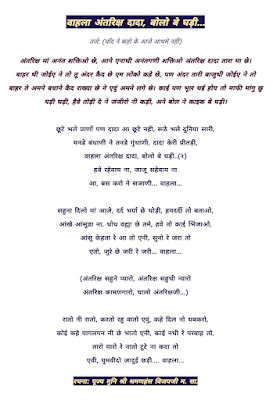 वाहला अंतरिक्ष दादा, बोलो बे घड़ी...
तर्ज: (चाँद ने कहो के आजे आथमे नहीं)
अंतरिक्ष मां अनंत शक्तिओ छे, आने एनाथी अनंतगणी शक्तिओ अंतरिक्ष दादा तारा मा छे।
बाहर थी जोईए ने तो तू अंदर कैद छे एम लोको कहे छे, पण अंदर तारी बाजुथी जोईए ने तो
बाहर ते अमने बधाने कैद राख्या छे ने एवुं अमने लागे छे। काई पण भूल थई होय तो माफी मांगु छु
घड़ी घड़ी, हैवे तोड़ी दे ने जंजीरो नी कड़ी, अने बोल ने काइक बे घड़ी।
छूटे भले प्राणों पण दादा आ छूटे नही, रूठे भले दुनिया सारी,
मनड़े बंधाणी ने तनड़े गुंथाणी, दादा केरी प्रीतड़ी,
वाहला अंतरिक्ष दादा, बोलो बे घड़ी..(२)
हवे रहेवाय ना, जाजू सहेवाय ना
आ, बस करो ने सजाणी... वाहला...
सहुना दिलो मां आजे, दर्द भर्या छे थोड़ी, हमदर्दी तो बताओ,
आंखे आंसूडा ना, धोध वह्या छे तमे, हवे तो काई भिंजाओ,
आंसू केहता रे आ तो एनी, सुनो रे जरा तो
एतो, जुरे छे जरी रे जरी... वाहला...
(अंतरिक्ष सहुने प्यारो, अंतरिक्ष सहुथी न्यारो
अंतरिक्ष कामणगारो, चालो अंतरिक्षजी...)
रातो नी रातो, करतो रहु वातो एवुं, कहे दिल नो धबकारो,
कोई कहे पागलपन नी छे भातो एनी, काई नथी रे परवाह तो,
तारो मारो रे नातो टूटे ना कदा तो
एथी, घुमवीदो जादुई छड़ी.... वाहला...
रचना: पूज्य मुनि श्री श्रमणहंस विजयजी म. सा.